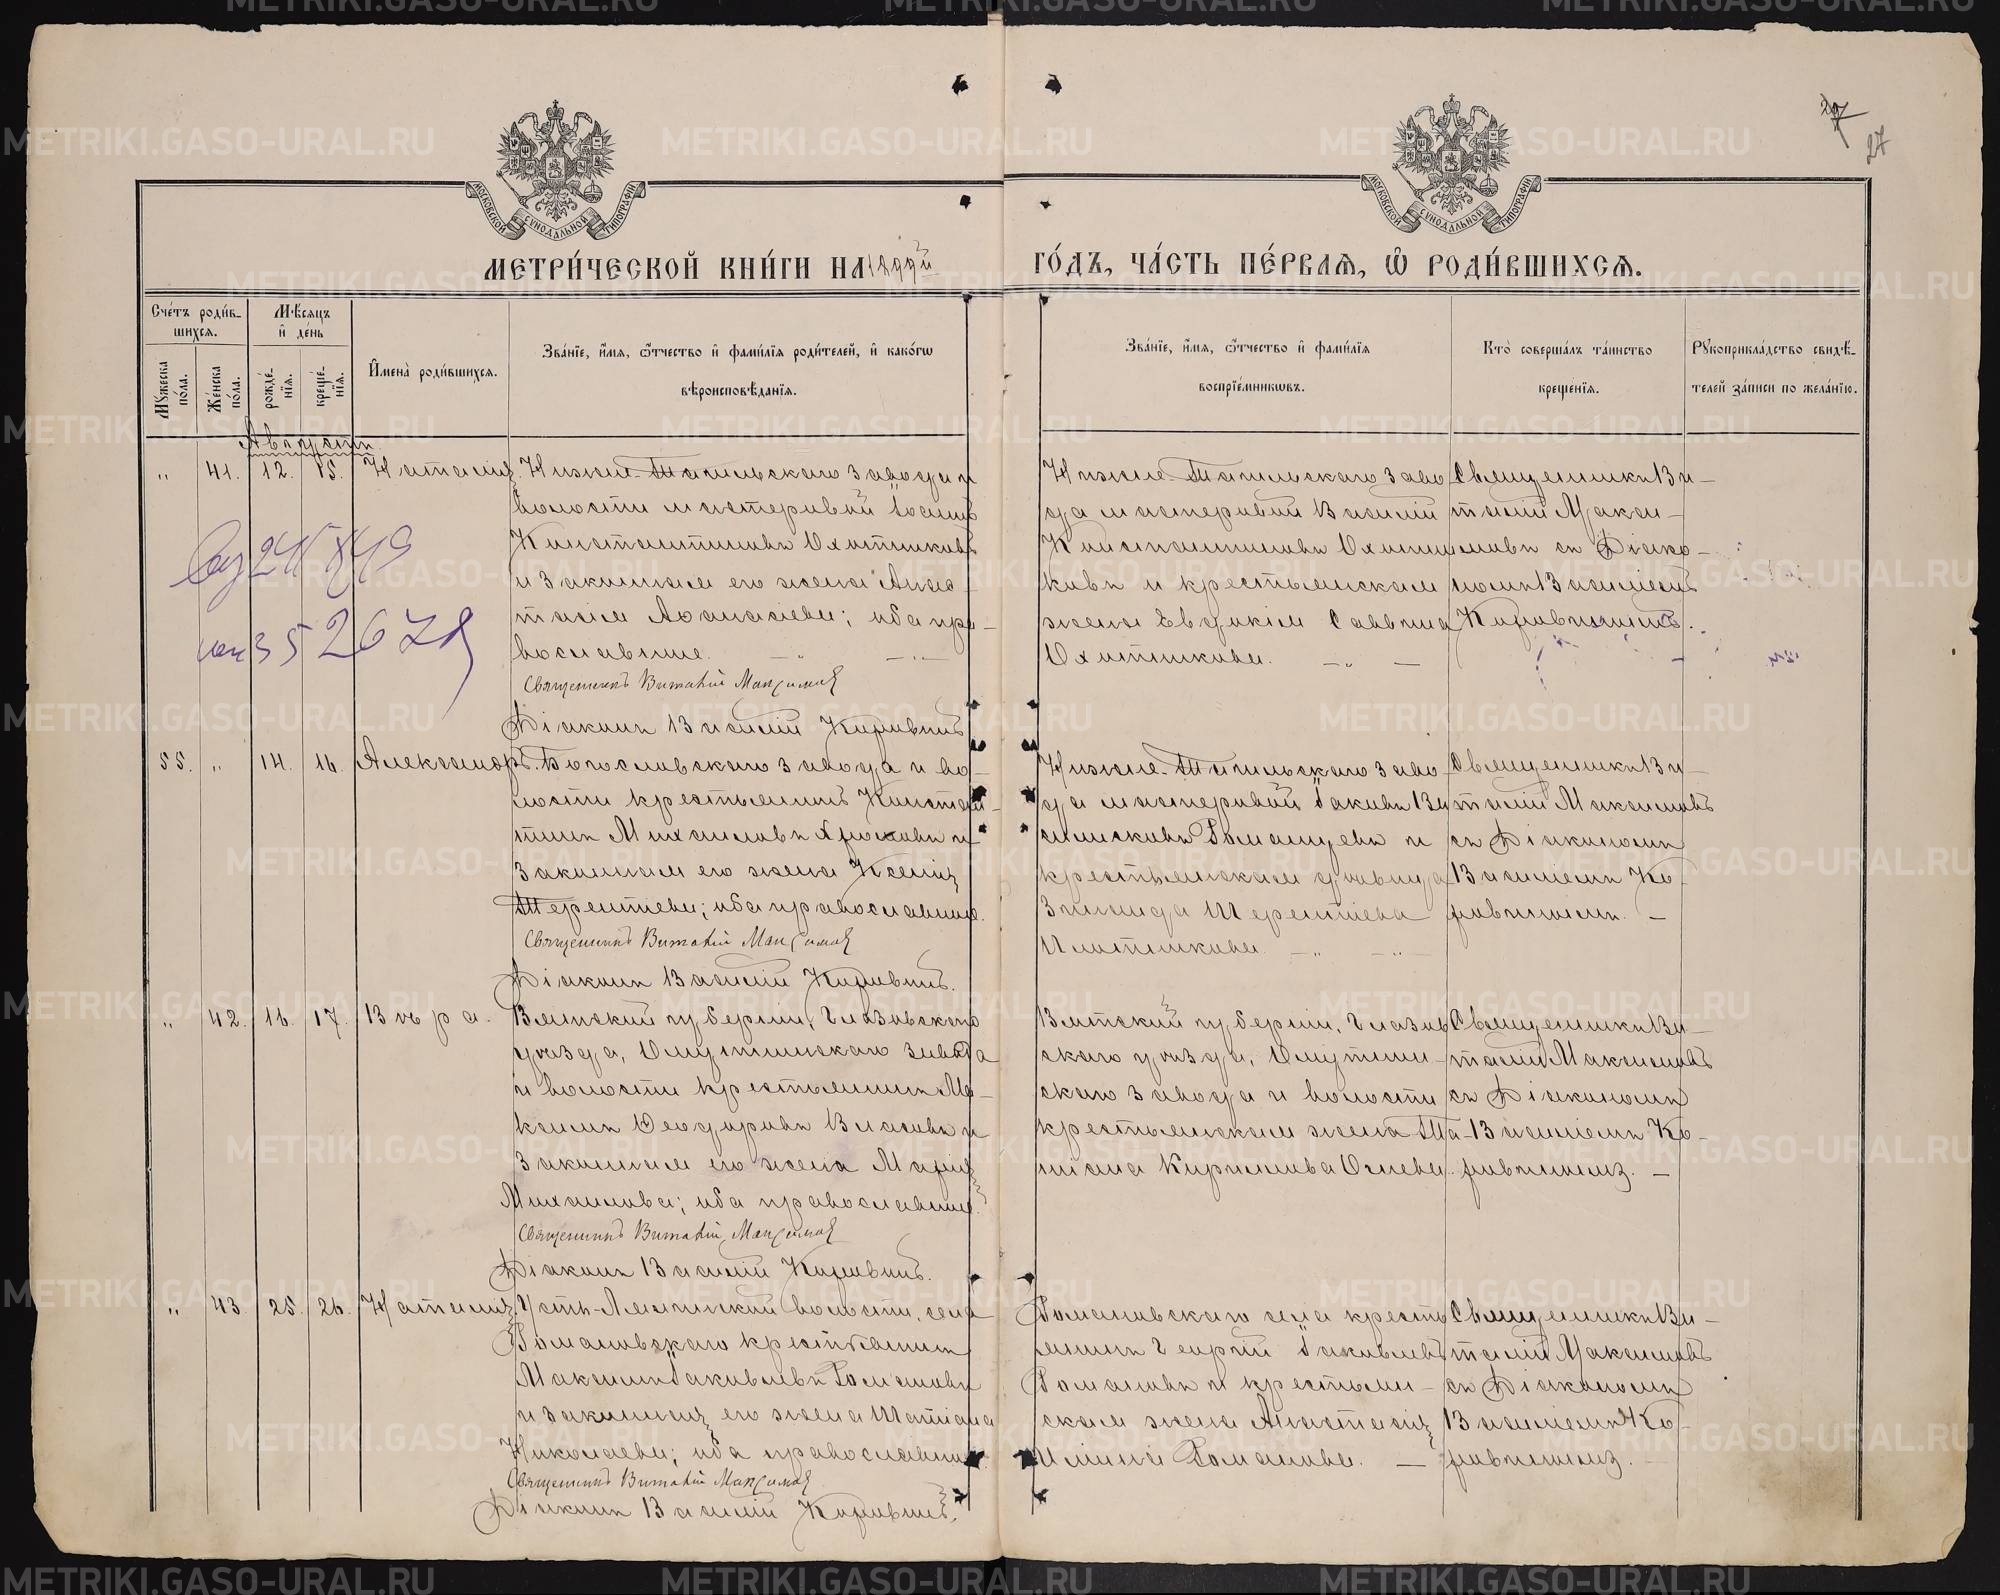 27
МОСКОВСКОЙ СУНОДАЛЬНОЙ ТИПОГРАФІИ
МОСКОВСКОЙ СУНОДАЛЬНОЙ ТИПОГРАФІИ
МЕТРИ́ЧЕСКОЙ КНИ́ГИ НА 1899й ГО́ДЪ, ЧА́СТЬ ПЕ́РВАЯ, Ѡ҆ РОДИ́ВШИХСЯ.
Сче́тъ роди́в-
шихсѧ.
Мѣ́сѧцъ
и҆ де́нь
Мꙋ́жеска
по́ла.
Же́нска
по́ла.
рожде́-
нїѧ.
креще́-
нїѧ.
И҆мена̀ роди́вшихсѧ.
Зва́нїе, и҆́мѧ, ѻ҆́тчество и҆ фами́лїѧ роди́телей, и҆ како́гѡ
вѣроисповѣ́данїѧ.
Зва́нїе, и҆́мѧ, ѻ҆́тчество и҆ фами́лїѧ
воспрїе́мникѡвъ.
Кто̀ соверша́лъ та́инство
креще́нїѧ.
Рꙋкоприкла́дство свидѣ́-
телей за́писи по жела́нїю.
Августъ
„ 41. 12. 15. Наталія.
Нижне-Тагильскаго завода и
волости мастеровой Іосифъ
Константиновъ Охотниковъ
и законная его жена Анас-
тасія Аѳанасіева; оба пра-
вославные.
Священникъ Виталій Максимовъ
Діаконъ Василій Коровинъ
Нижне-Тагильскаго заво-
да мастеровой Василій
Константиновъ Охотни-
ковъ и крестьянская
жена Евдокія Саввина
Охотникова.
Священникъ Ви-
талій Макси-
мовъ съ Діако-
номъ Василіемъ
245849
352678
55. „ 14. 16. Александръ.
Богословскаго завода и во-
лости крестьянинъ Констан-
тинъ Михаиловъ и
законная его жена Ксенія
Терентіева; оба православные.
Священникъ Виталій Максимовъ
Діаконъ Василій Коровинъ.
Нижне-Тагильскаго заво-
да мастеровой Іаковъ Ва-
силисковъ Румянцевъ и
крестьянская дѣвица
Зинаида Терентіева
Плотникова.
Священникъ Ви-
талій Максимовъ
съ Діакономъ
Василіемъ Ко-
„ 42. 16. 17. Вѣра.
Вятской губерніи, Глазовскаго
уѣзда, Омутнинскаго завода
и волости крестьянинъ Ма-
ксимъ Ѳеодоровъ Власовъ и
законная его жена Марія
Михаилова; оба православные.
Священникъ Виталій Максимовъ
Діаконъ Василій Коровинъ.
Вятской губерніи, Глазов-
скаго уѣзда, Омутнин-
скаго завода и волости
крестьянская жена Та-
тіана Кириллова
Священникъ Ви-
талій Максимовъ
съ Діакономъ
Василіемъ Ко-
„ 43. 25. 26. Наталія.
Усть-Лялинской волости, села
Романовскаго крестьянинъ
Максимъ Іаковлевъ Романовъ
и законная его жена Татіана
Николаева; оба православные.
Священникъ Виталій Максимовъ
Діаконъ Василій Коровинъ.
Романовскаго села кресть-
янинъ Георгій Іаковлевъ
Романовъ и крестьян-
ская жена Анастасія
Романова.
Священникъ Ви-
талій Максимовъ
съ Діакономъ
Василіемъ Ко-
METRIKI.GASO-URAL.RU